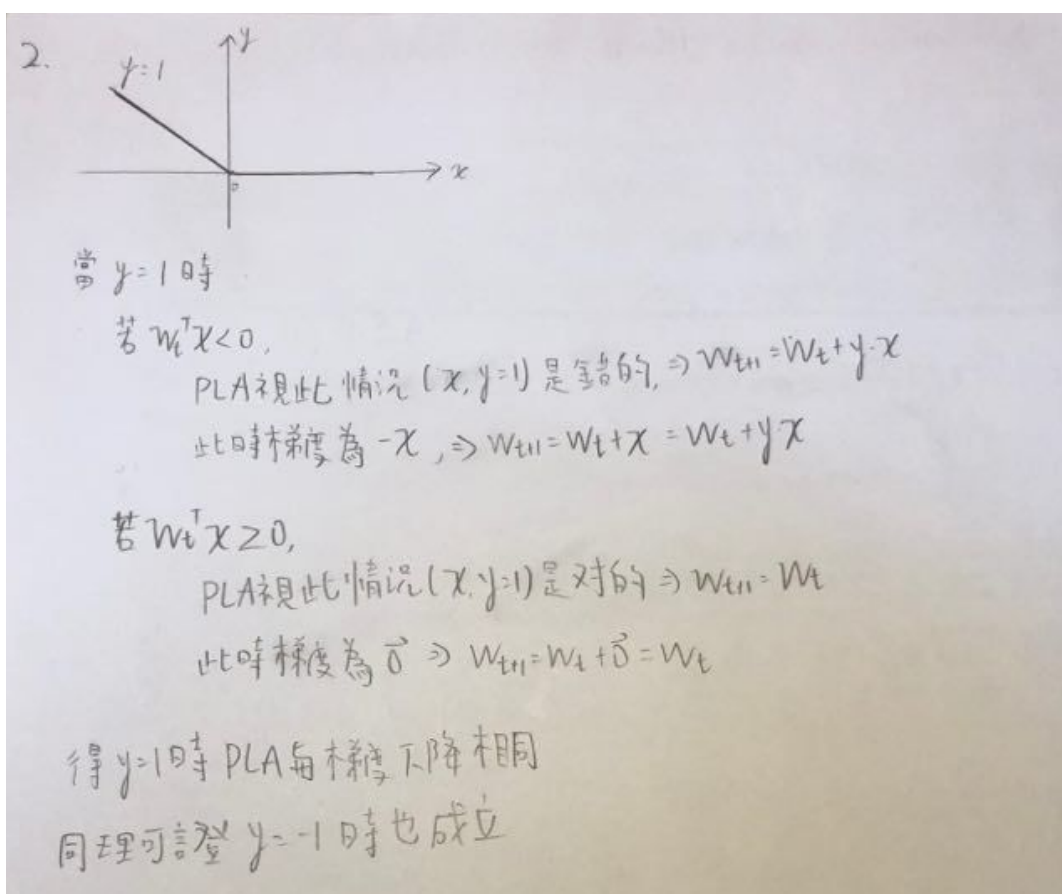 2.
y
y=1
0
x
當 y=1 時
若 Wₜᵀx<0,
PLA視此情況 (x, y=1) 是錯的, ⇒ Wₜ₊₁=Wₜ+y·x
此時梯度為 -x, ⇒ Wₜ₊₁=Wₜ+x = Wₜ+yx
若 Wₜᵀx≥0,
PLA視此情況(x, y=1)是対的 ⇒ Wₜ₊₁=Wₜ
此時梯度為 0⃗ ⇒ Wₜ₊₁=Wₜ+0⃗=Wₜ
得 y=1時 PLA与梯度下降相同
同理可證 y=-1 時也成立